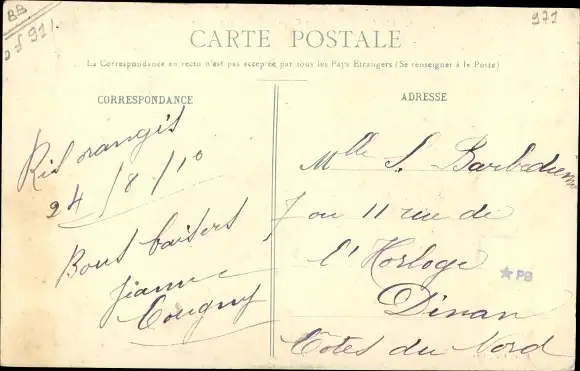 BB
971
CARTE POSTALE
La Correspondance au recto n'est pas acceptée par tous les Pays Etrangers (Se renseigner à la Poste)
CORRESPONDANCE
Ris orangis
24/8/10
Bons baisers
Jeanne
Cougny
ADRESSE
Mlle S. Barbedienne
7 ou 11 rue de
l'Horloge
Dinan
Côtes du Nord
PB